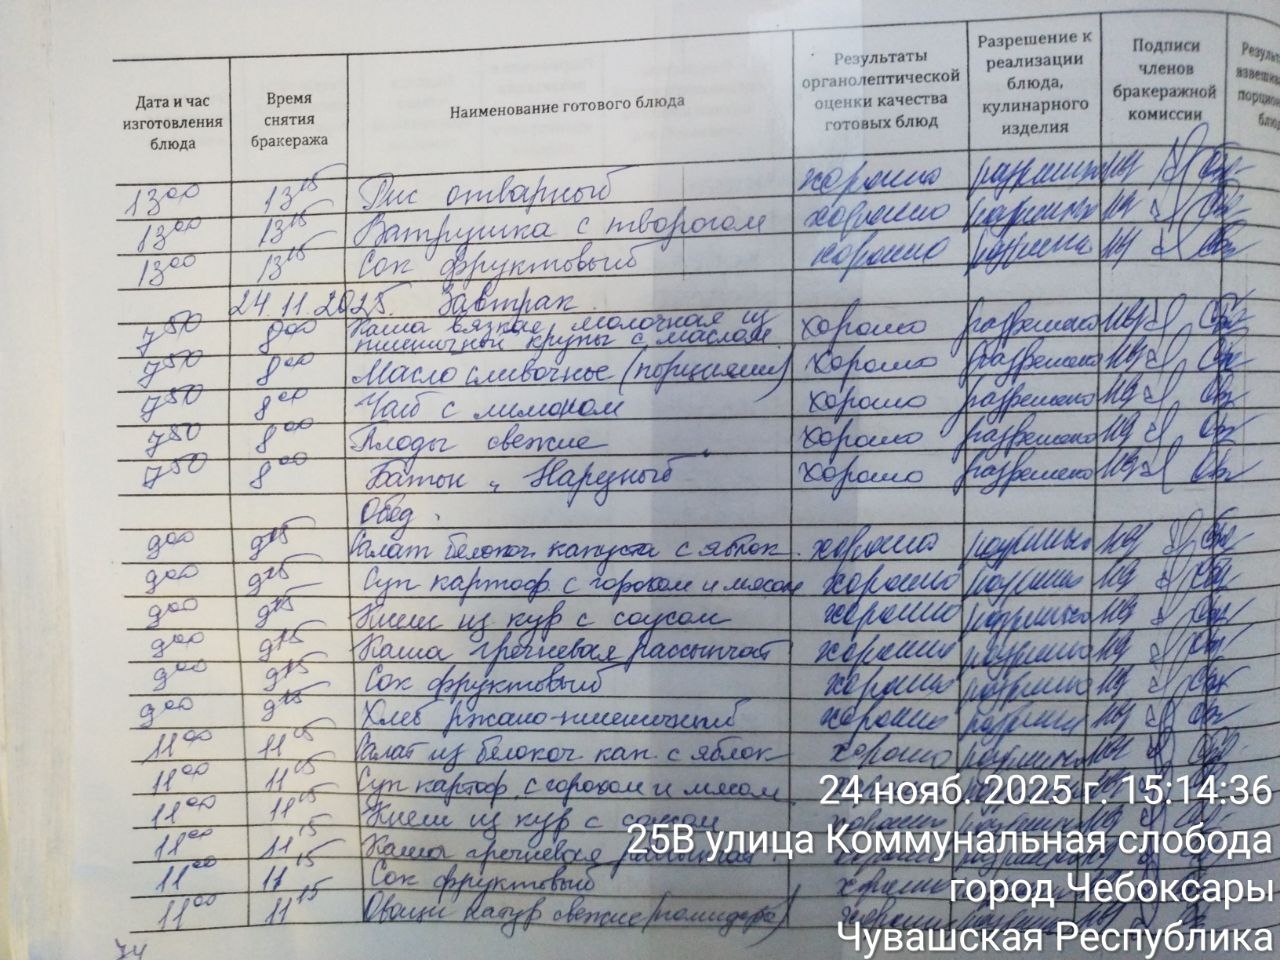 Дата и час изготовления блюда | Время снятия бракеража | Наименование готового блюда | Результаты органолептической оценки качества готовых блюд | Разрешение к реализации блюда, кулинарного изделия | Подписи членов бракеражной комиссии
13 00 | 13 15 | Рис отварный | хорошо | разрешено
13 00 | 13 15 | Ватрушка с творогом | хорошо | разрешено
13 00 | 13 15 | Сок фруктовый | хорошо | разрешено
24.11.2025. Завтрак
7 50 | 8 00 | Каша вязкая молочная из пшеничной крупы с маслом | хорошо | разрешено
7 50 | 8 00 | Масло сливочное (порциями) | хорошо | разрешено
7 50 | 8 00 | Чай с лимоном | хорошо | разрешено
7 50 | 8 00 | Плоды свежие | хорошо | разрешено
7 50 | 8 00 | Батон „Нарезный" | хорошо | разрешено
Обед.
9 00 | 9 15 | Салат белокоч. капуста с яблок. | хорошо | разрешено
9 00 | 9 15 | Суп картоф. с горохом и мясом | хорошо | разрешено
9 00 | 9 15 | из кур с соусом | хорошо | разрешено
9 00 | 9 15 | Каша гречневая рассыпчат | хорошо | разрешено
9 00 | 9 15 | Сок фруктовый | хорошо | разрешено
9 00 | 9 15 | Хлеб ржано-пшеничный | хорошо | разрешено
11 00 | 11 15 | Салат из белокоч кап. с яблок | хорошо | разрешено
11 00 | 11 15 | Суп картоф. с горохом и мясом
11 00 | 11 15 | из кур с соусом | хорошо
11 00 | 11 15 | Каша гречневая | хорошо | разрешено
11 00 | 11 15 | Сок фруктовый | хорошо
11 00 | 11 15 | Овощи натур свежие (помидора) | хорошо
74
24 нояб. 2025 г. 15:14:36
25В улица Коммунальная слобода
город Чебоксары
Чувашская Республика